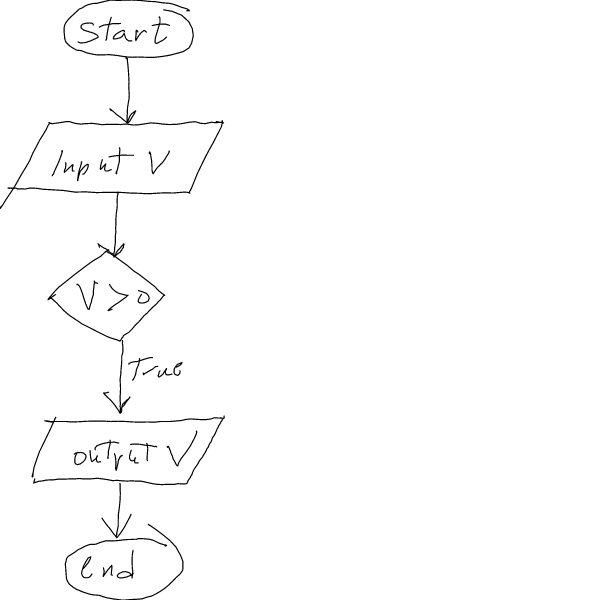 Start
Input V
V > 0
True
output V
end